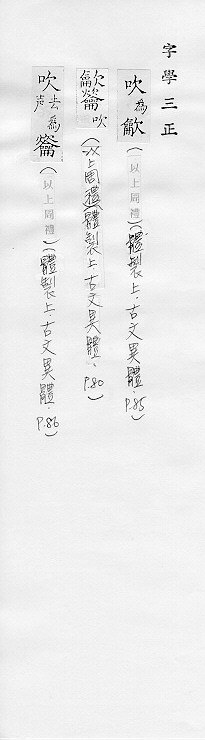 字學三正
吹為龡（以上周禮）（體製上·古文異體·P.85）
龡籥吹（以上周禮）（體製上·古文異體·P.80）
吹去声為（以上周禮）（體製上·古文異體·P.86）